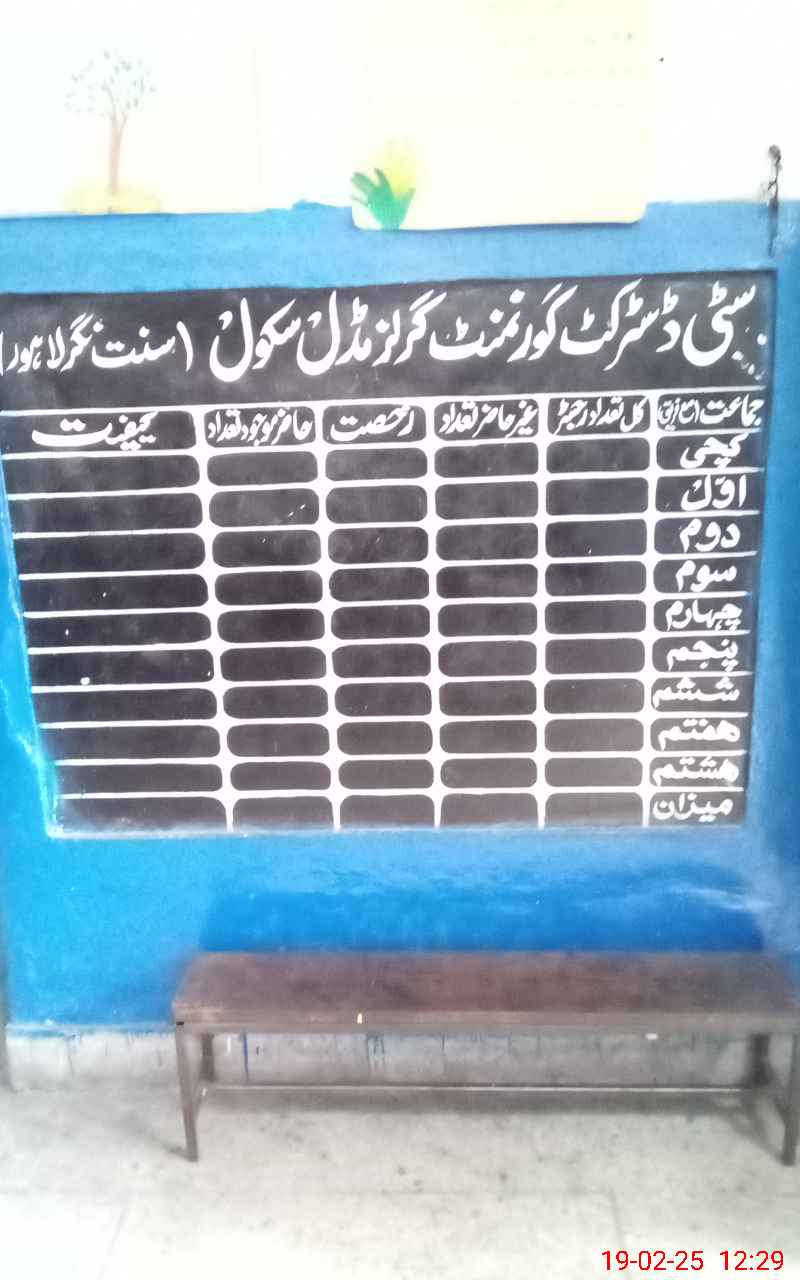 سٹی ڈسٹرکٹ گورنمنٹ گرلز مڈل سکول (سنت نگر لاہور)
جماعت کل تعداد رجسٹر غیر حاضر تعداد رخصت حاضر موجود تعداد کیفیت
کچی
اوّل
دوم
سوم
چہارم
پنجم
ششم
ہفتم
ہشتم
میزان
19-02-25 12:29